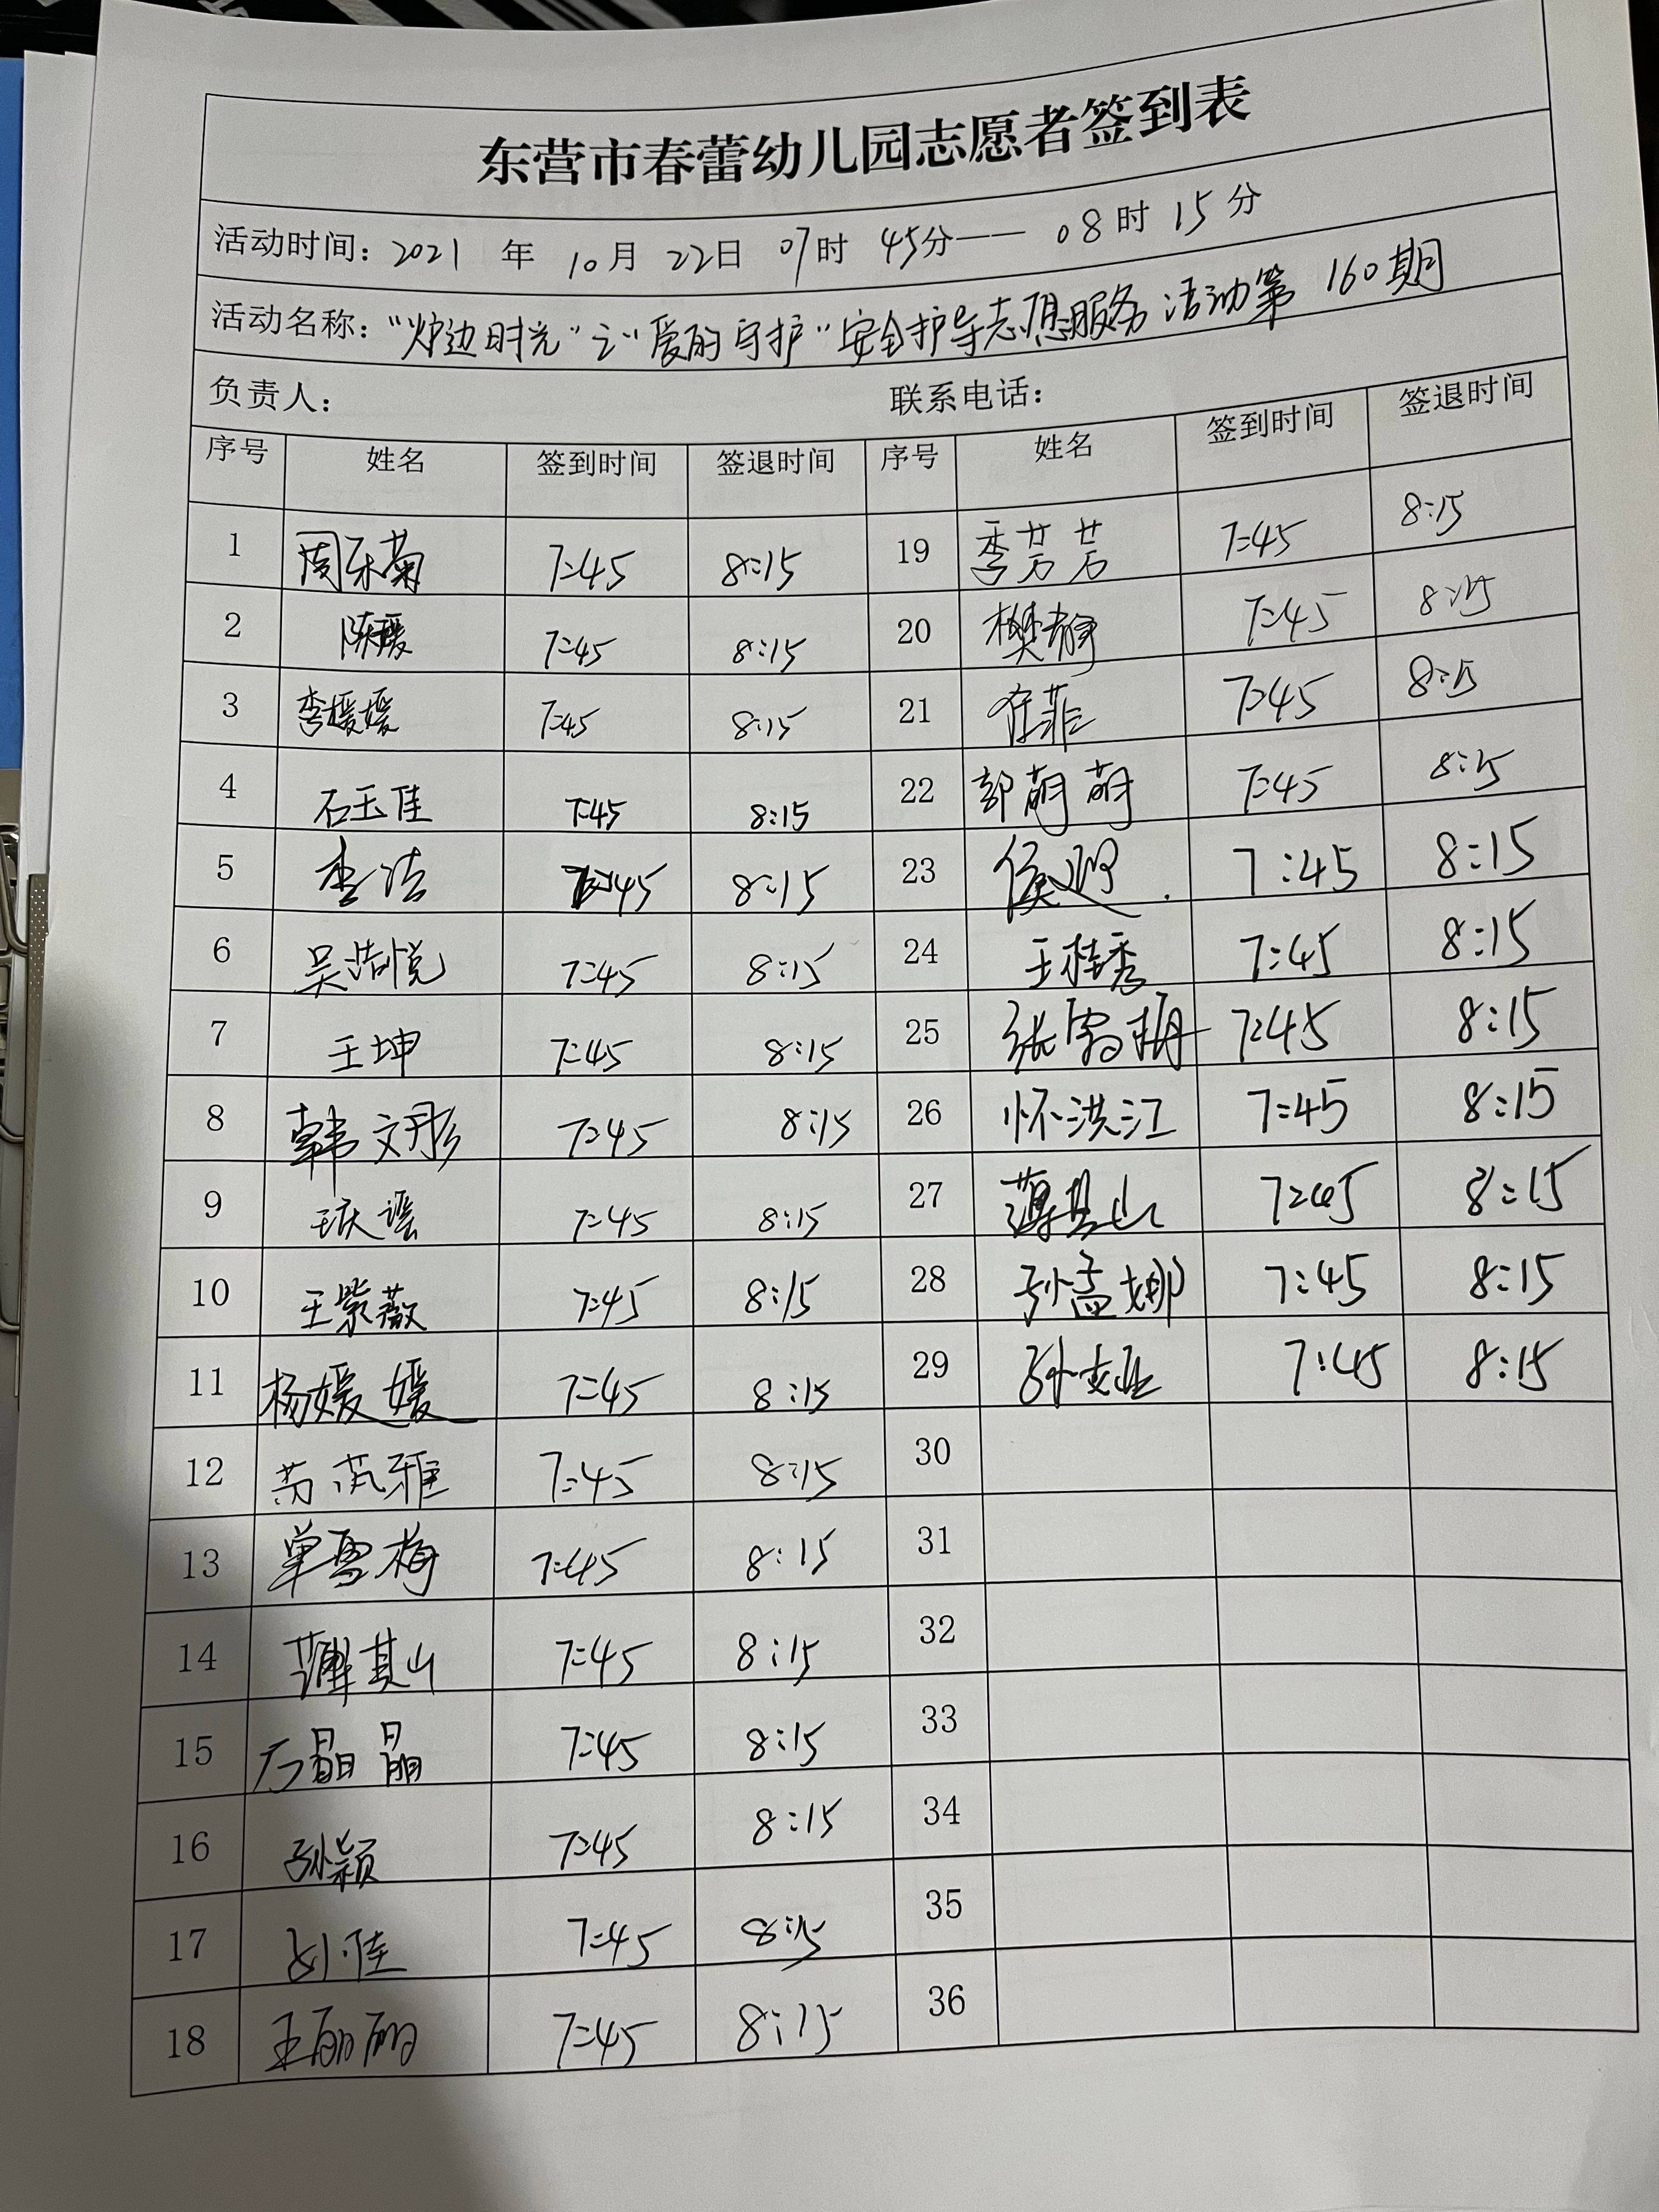 东营市春蕾幼儿园志愿者签到表
活动时间：2021 年 10月 22日 07时 45分—— 08时 15分
活动名称：“炉边时光”之“爱的守护”安全护导志愿服务活动第 160期
负责人： 联系电话：
序号 姓名 签到时间 签退时间 序号 姓名 签到时间 签退时间
1 周乐菊 7:45 8:15 19 李芳芳 7:45 8:15
2 陈媛 7:45 8:15 20 樊静 7:45 8:15
3 李媛媛 7:45 8:15 21 崔菲 7:45 8:15
4 石玉佳 7:45 8:15 22 郭萌萌 7:45 8:15
5 李洁 7:45 8:15 23 7:45 8:15
6 吴浩悦 7:45 8:15 24 王桂秀 7:45 8:15
7 王坤 7:45 8:15 25 7:45 8:15
8 韩文彤 7:45 8:15 26 怀洪江 7:45 8:15
9 7:45 8:15 27 薄其山 7:45 8:15
10 王紫薇 7:45 8:15 28 孙孟娜 7:45 8:15
11 杨媛媛 7:45 8:15 29 7:45 8:15
12 7:45 8:15 30
13 单雪梅 7:45 8:15 31
14 薄其山 7:45 8:15 32
15 7:45 8:15 33
16 孙颖 7:45 8:15 34
17 刘佳 7:45 8:15 35
18 王丽丽 7:45 8:15 36